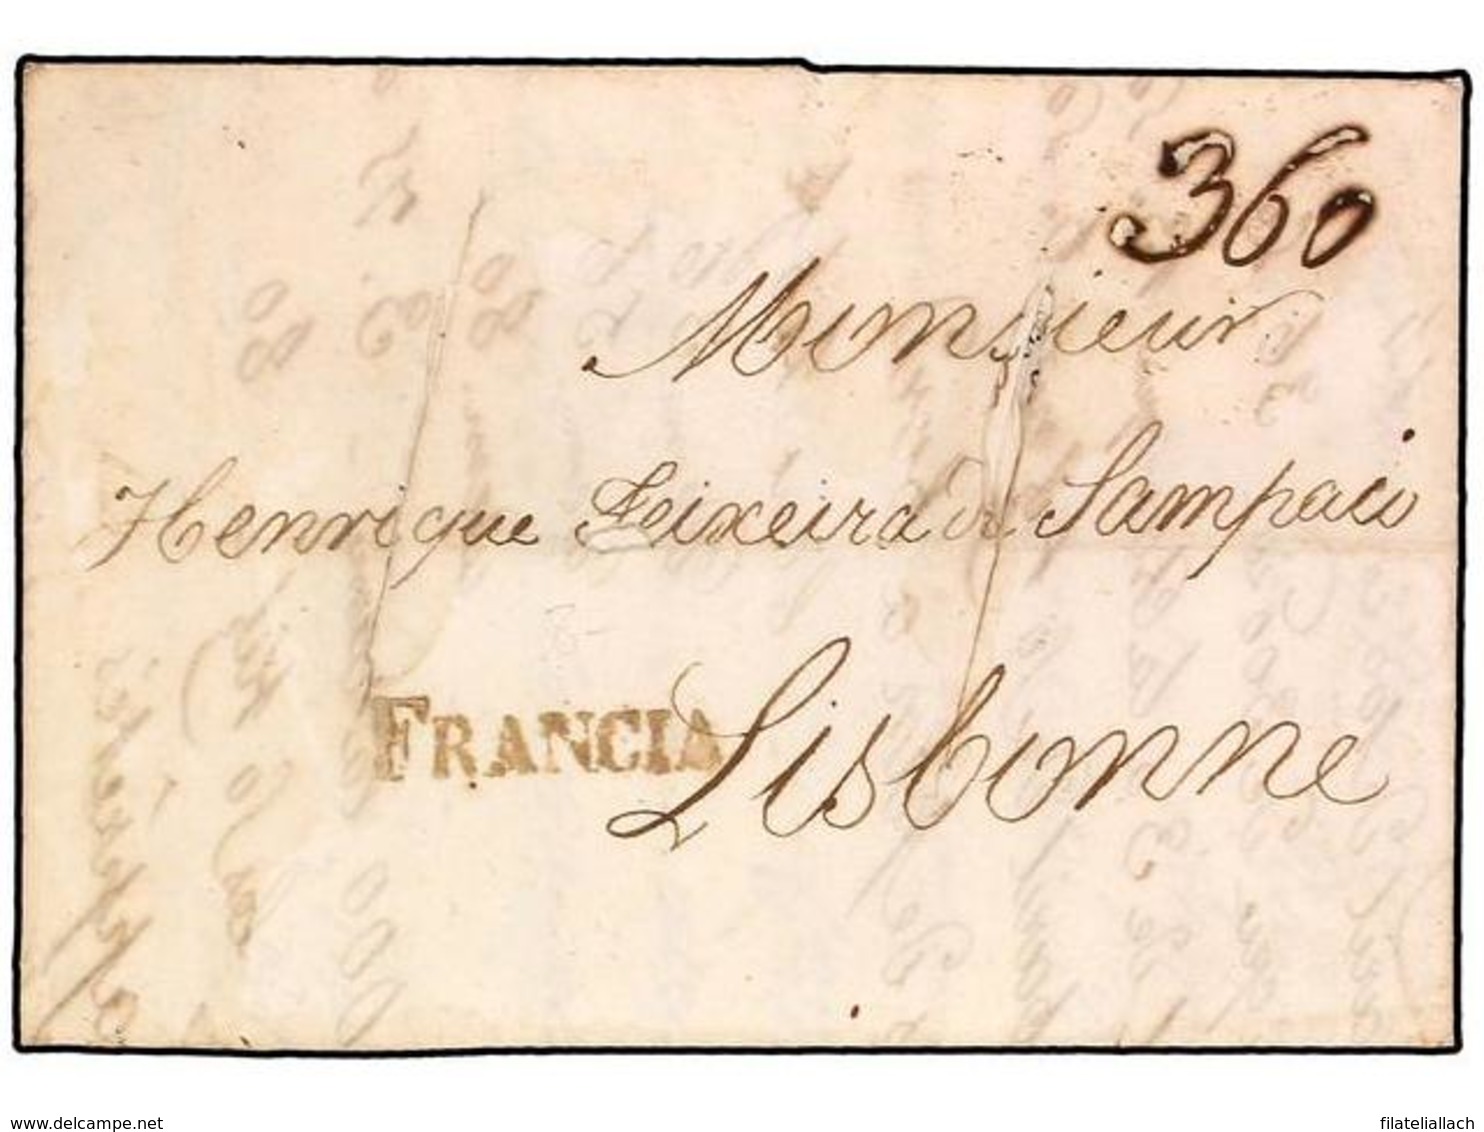 360
Monsieur
Henrique Teixeira de Sampaio
FRANCIA
Lisbonne
delcampe.net
filateliallach